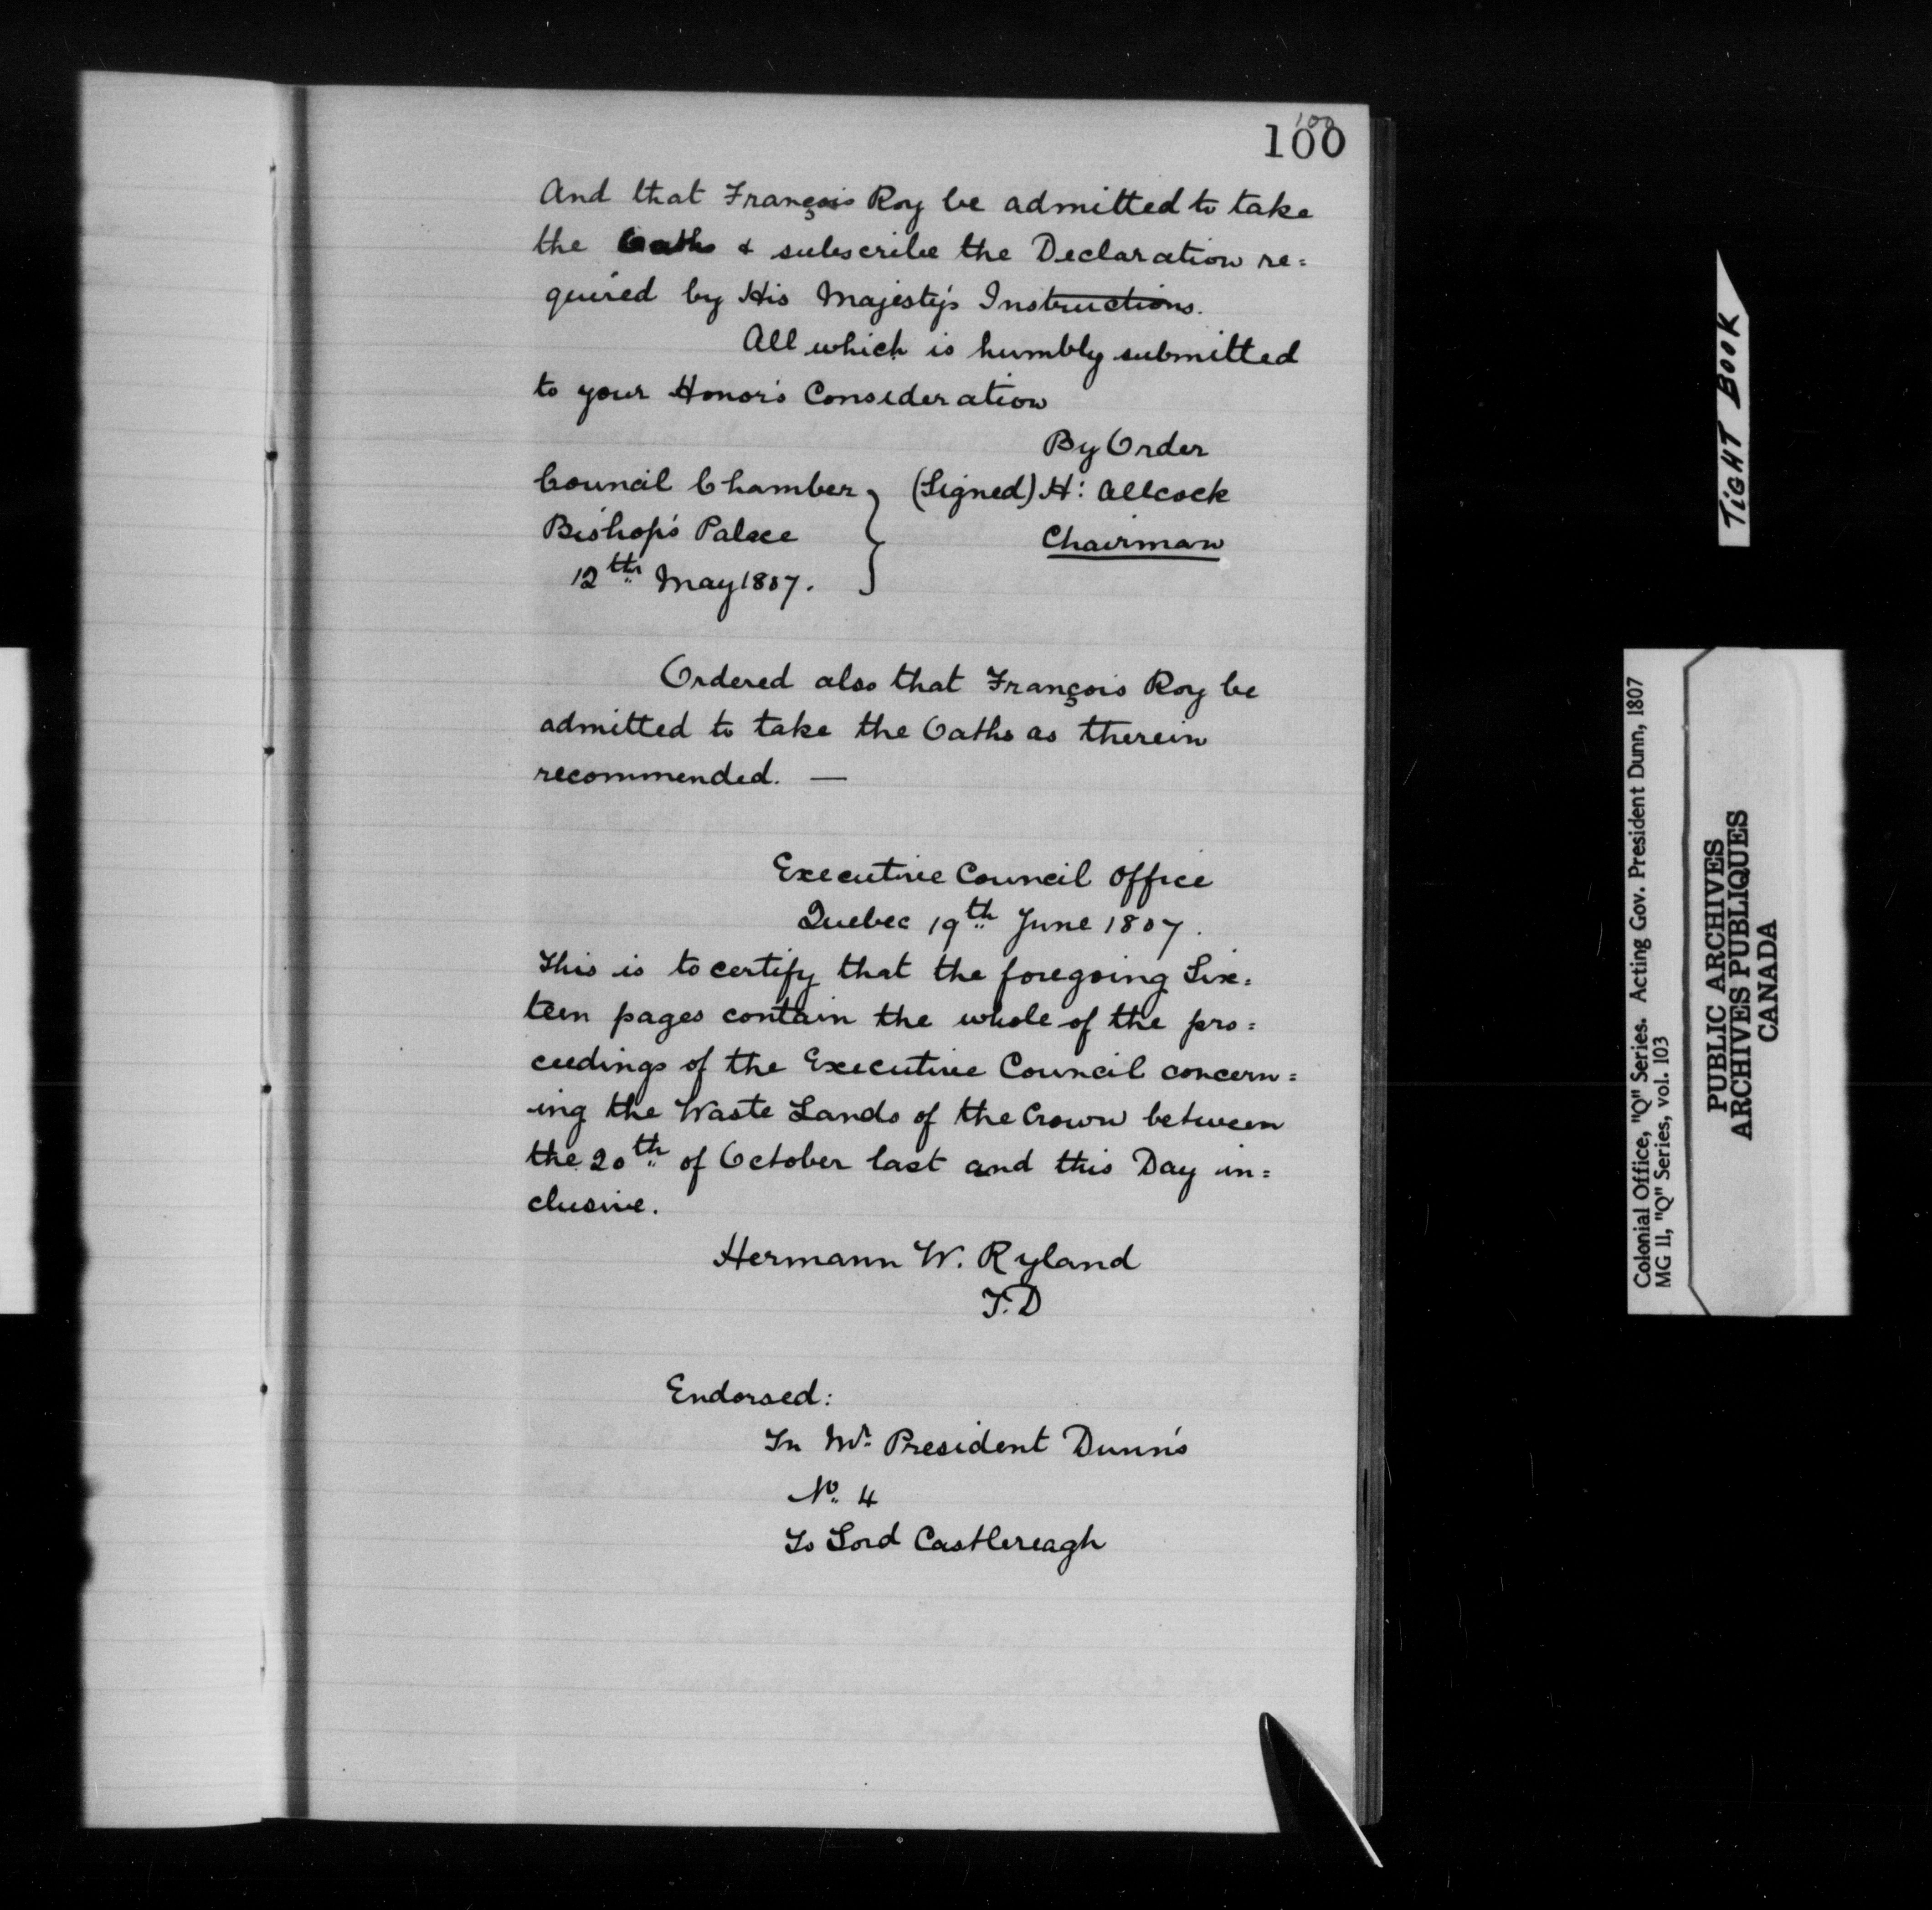 100
100
And that François Roy be admitted to take
the Oaths & subscribe the Declaration re=
quired by His Majesty's Instructions.
All which is humbly submitted
to your Honor's Consideration
By Order
Council Chamber (Signed) H: Allcock
Bishop's Palace Chairman
12th May 1807.
Ordered also that François Roy be
admitted to take the Oaths as therein
recommended. —
Executive Council Office
Quebec 19th June 1807.
This is to certify that the foregoing Six=
teen pages contain the whole of the pro=
ceedings of the Executive Council concern=
ing the Waste Lands of the Crown between
the 20th of October last and this Day in=
clusive.
Hermann W. Ryland
T.D
Endorsed:
In Mr. President Dunn's
No. 4
To Lord Castlereagh
TIGHT BOOK
Colonial Office, "Q" Series. Acting Gov. President Dunn, 1807
MG 11, "Q" Series, vol. 103
PUBLIC ARCHIVES
ARCHIVES PUBLIQUES
CANADA